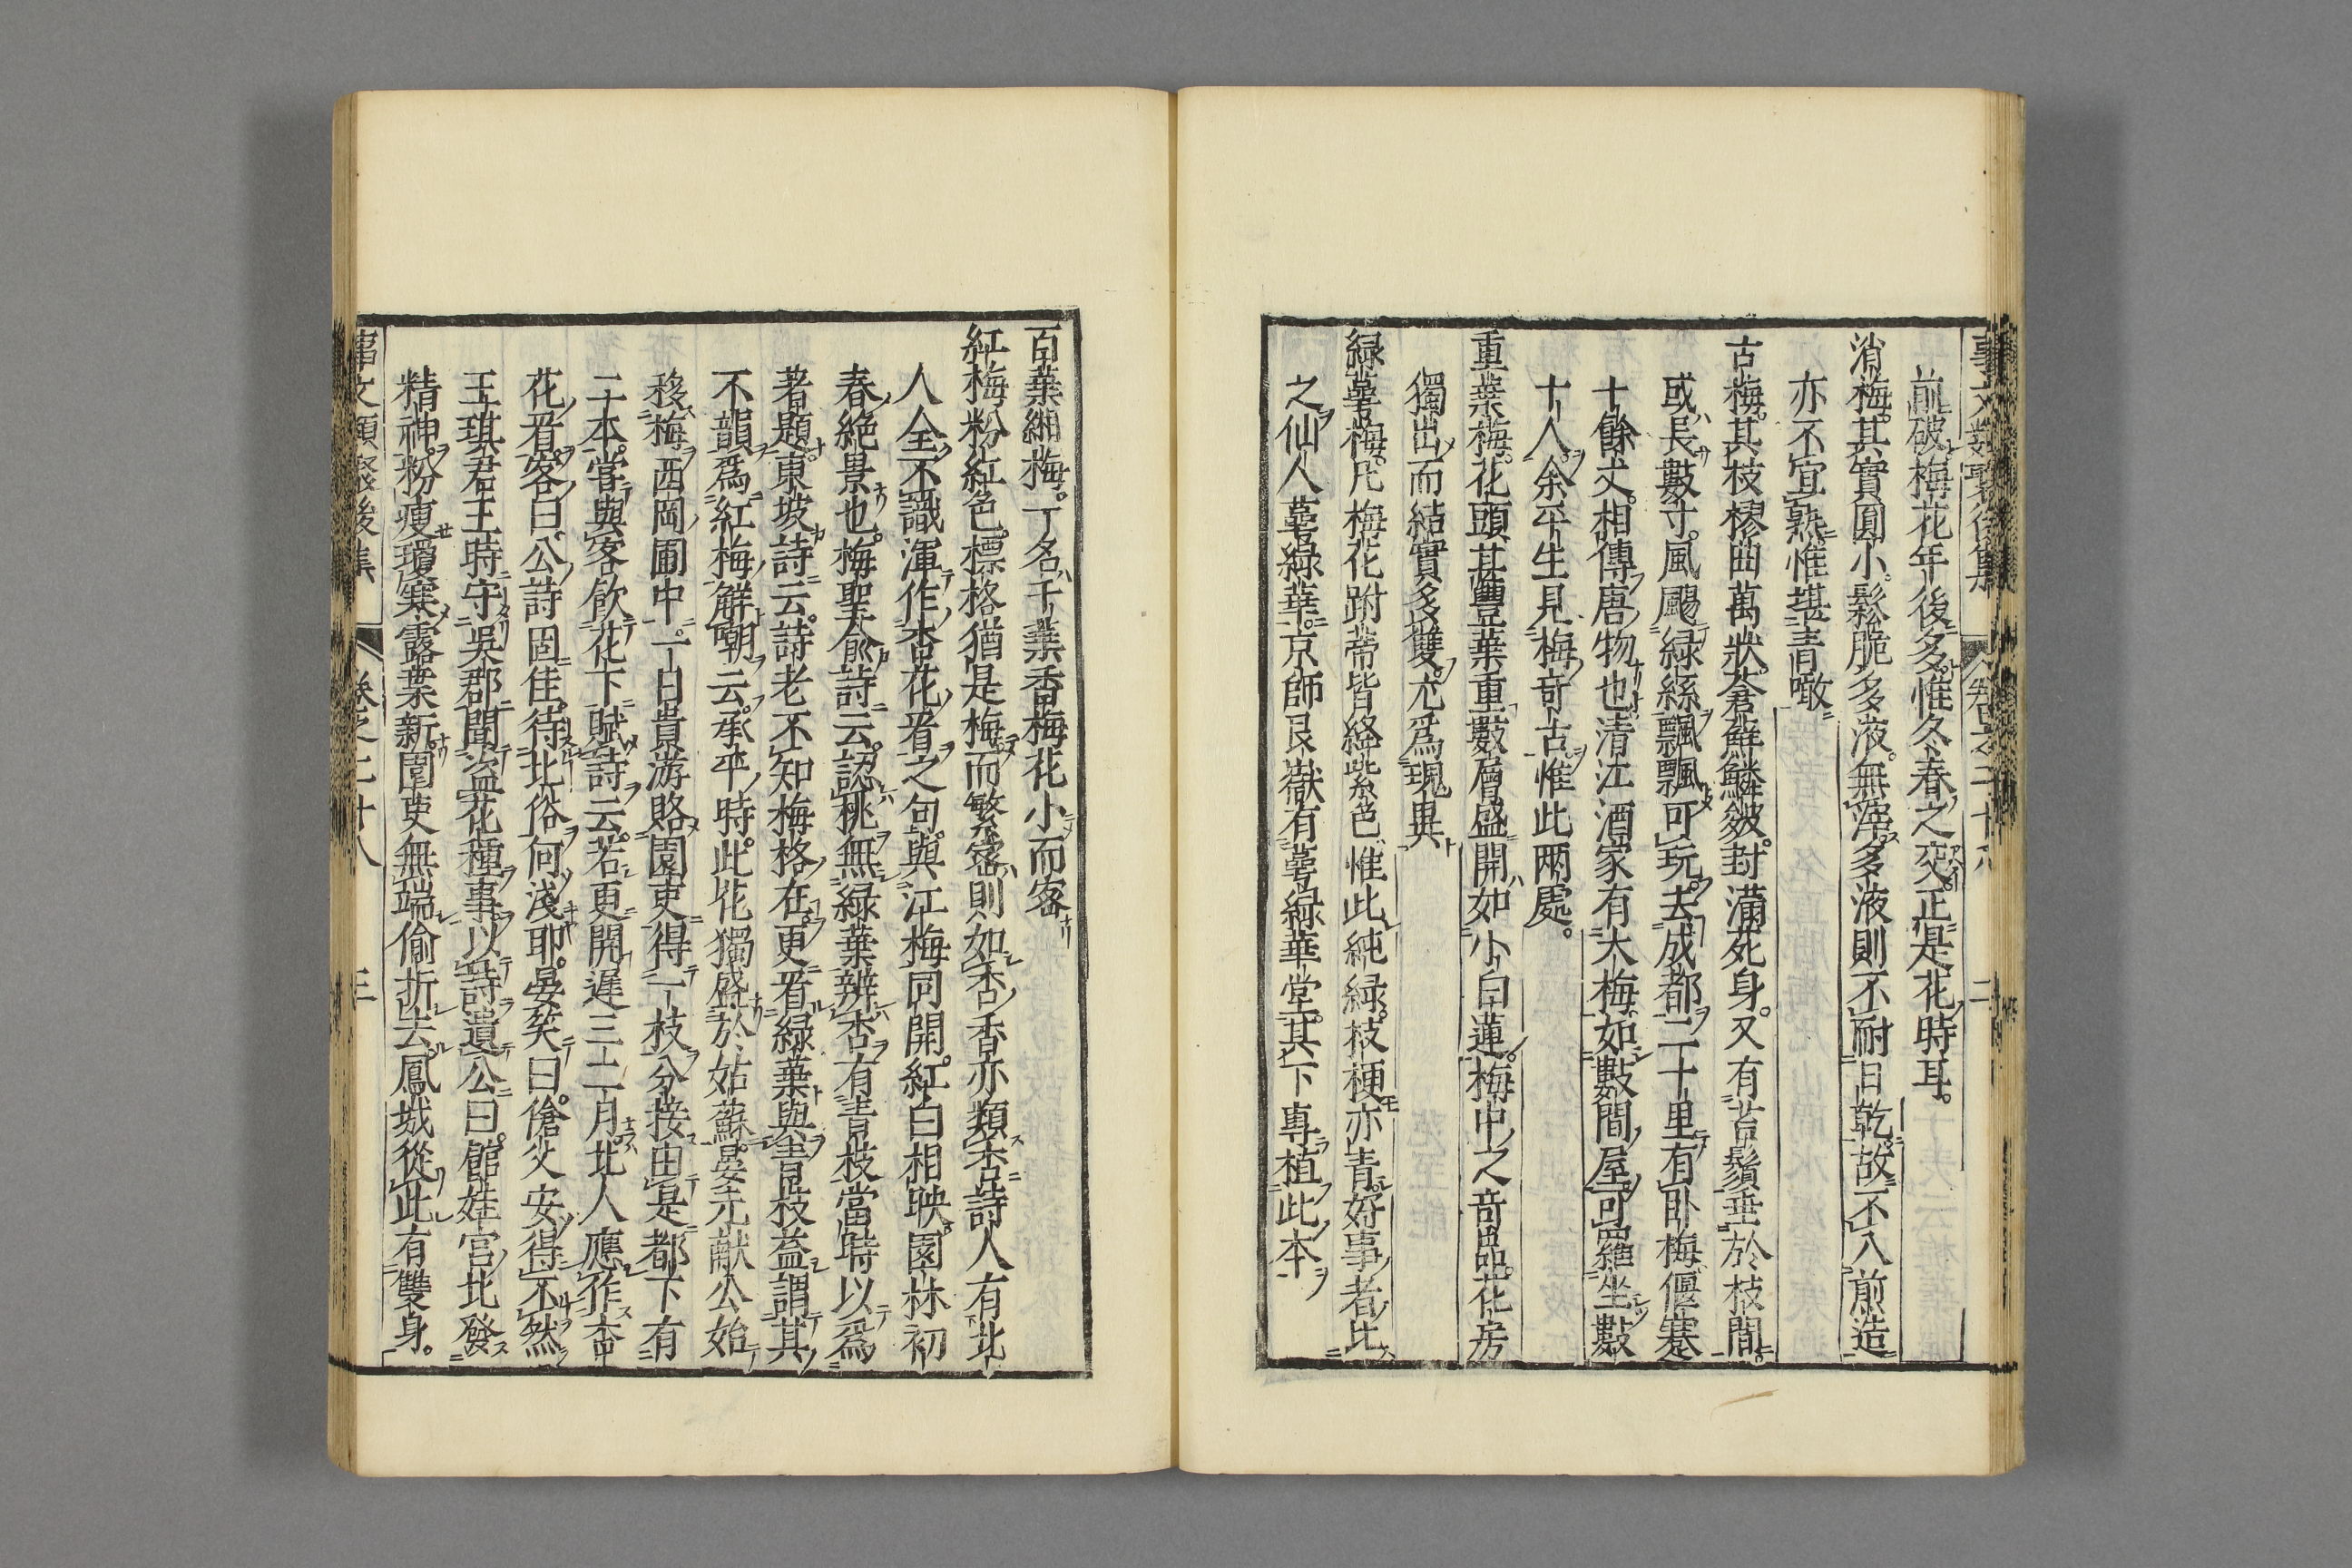 前破梅花年後多惟冬春之交正是花時耳。
消梅。其實圓小鬆脆多液無滓多液則不耐日乾故不入煎造
亦不宜熟惟堪青噉
古梅。其枝樛曲萬狀蒼蘚鱗皴封滿死身又有苔鬚垂於枝間
或長數寸風颺緑絲飄飄可玩去成都二十里有卧梅偃蹇
十餘丈相傳唐物也清江酒家有大梅如數間屋可羅坐數
十人余平生見梅竒古惟此兩處。
重葉梅。花頭甚豐葉重數層盛開如小白蓮梅中之竒品花房
獨出而結實多雙尤爲瑰異
緑萼梅。凡梅花跗蒂皆絳紫色惟此純緑枝梗亦青好事者比
之仙人萼緑華京師艮嶽有萼緑華堂其下專植此本
百葉緗梅。一名千葉香梅花小而密
紅梅粉紅色標格猶是梅而繁密則如杏香亦類杏詩人有北
人全不識渾作杏花看之句與江梅同開紅白相映園林初
春絶景也梅聖俞詩云認桃無緑葉辨杏有青枝當時以爲
著題東坡詩云詩老不知梅格在更看緑葉與青枝蓋謂其
不韻爲紅梅解嘲云承平時此花獨盛於姑蘇晏元献公始
移梅西岡圃中一日貴游賂園吏得一枝分接由是都下有
二本嘗與客飲花下賦詩云若更開遲三二月北人應作杏
花看客曰公詩固佳待北俗何淺耶晏笑曰傖父安得不然
王琪君玉時守吳郡聞盗花種事以詩遺公曰館娃宮北發
精神粉瘦瓊寒露蘂新園吏無端偷折去鳳城從此有雙身。
事文類聚後集 卷之二十八 三